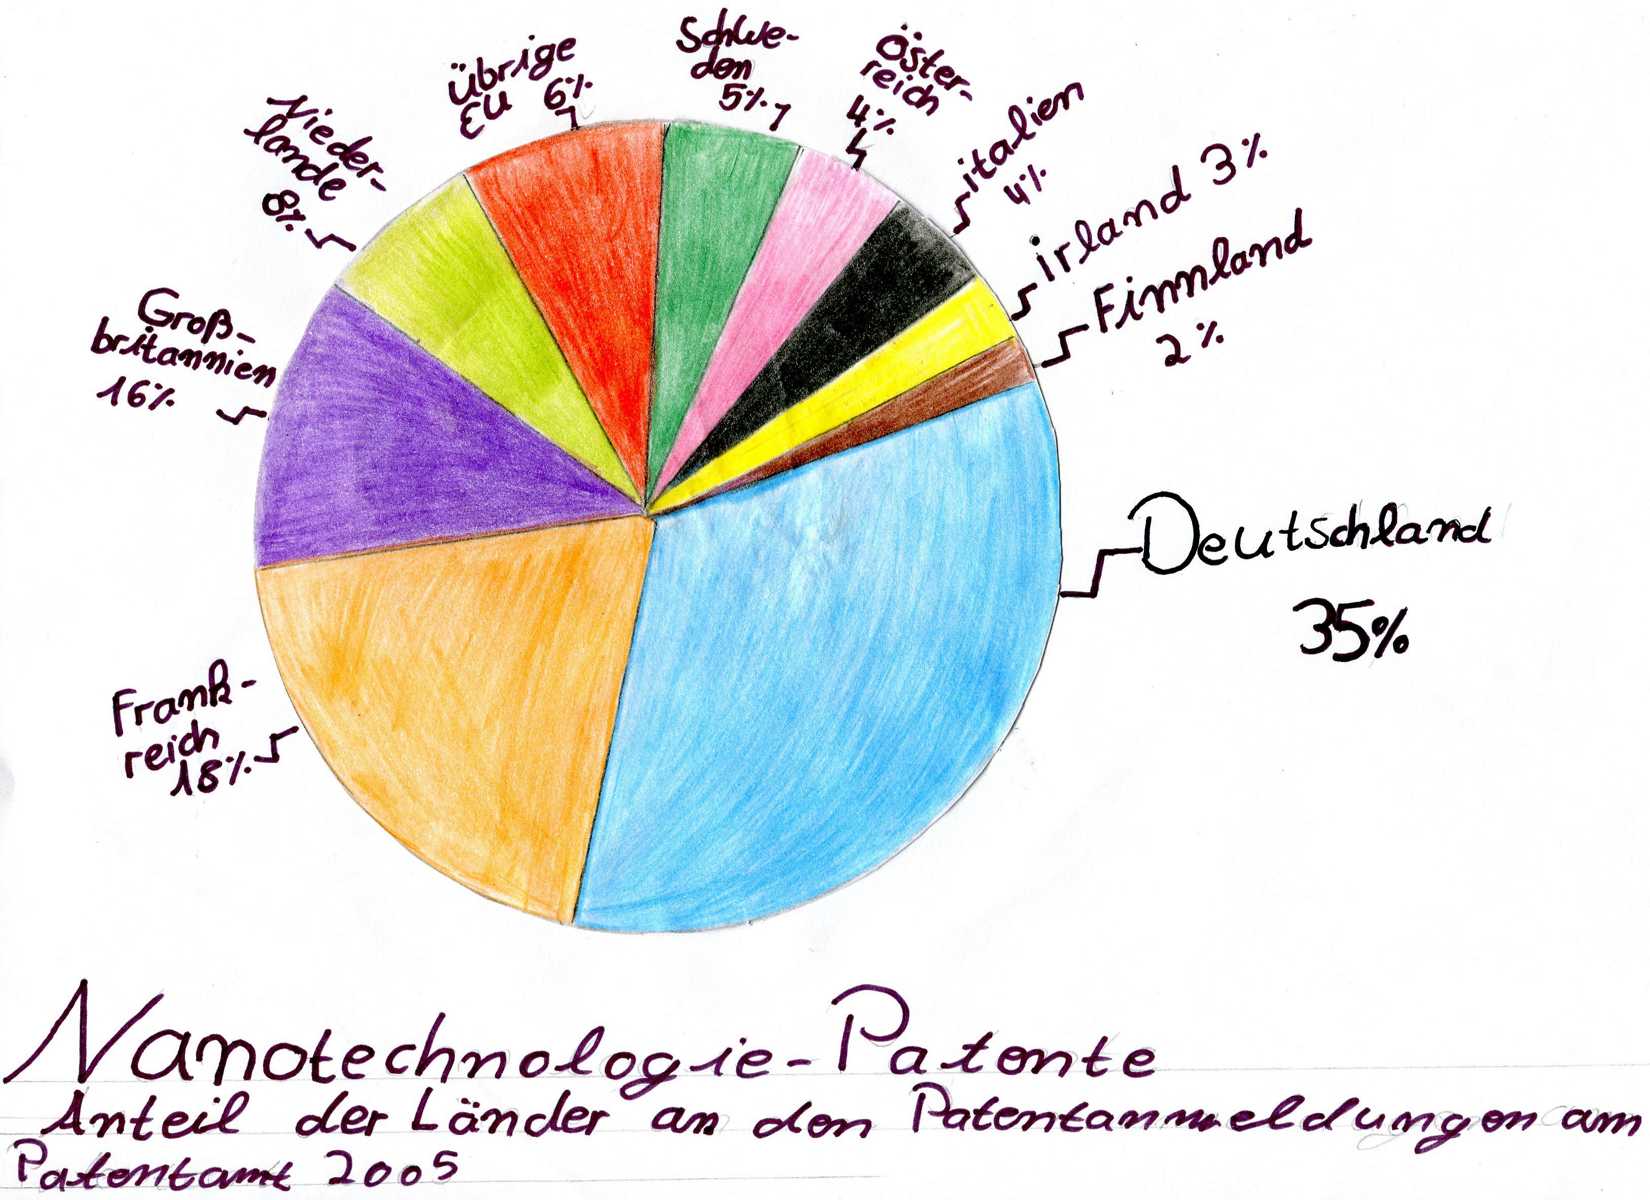 Übrige
EU 6%
Schwe-
den
5%
Öster-
reich
4%
italien
4%
irland 3%
Finnland
2%
Nieder-
lande
8%
Groß-
britannien
16%
Deutschland
35%
Frank-
reich
18%
Nanotechnologie-Patente
Anteil der Länder an den Patentanmeldungen am
Patentamt 2005